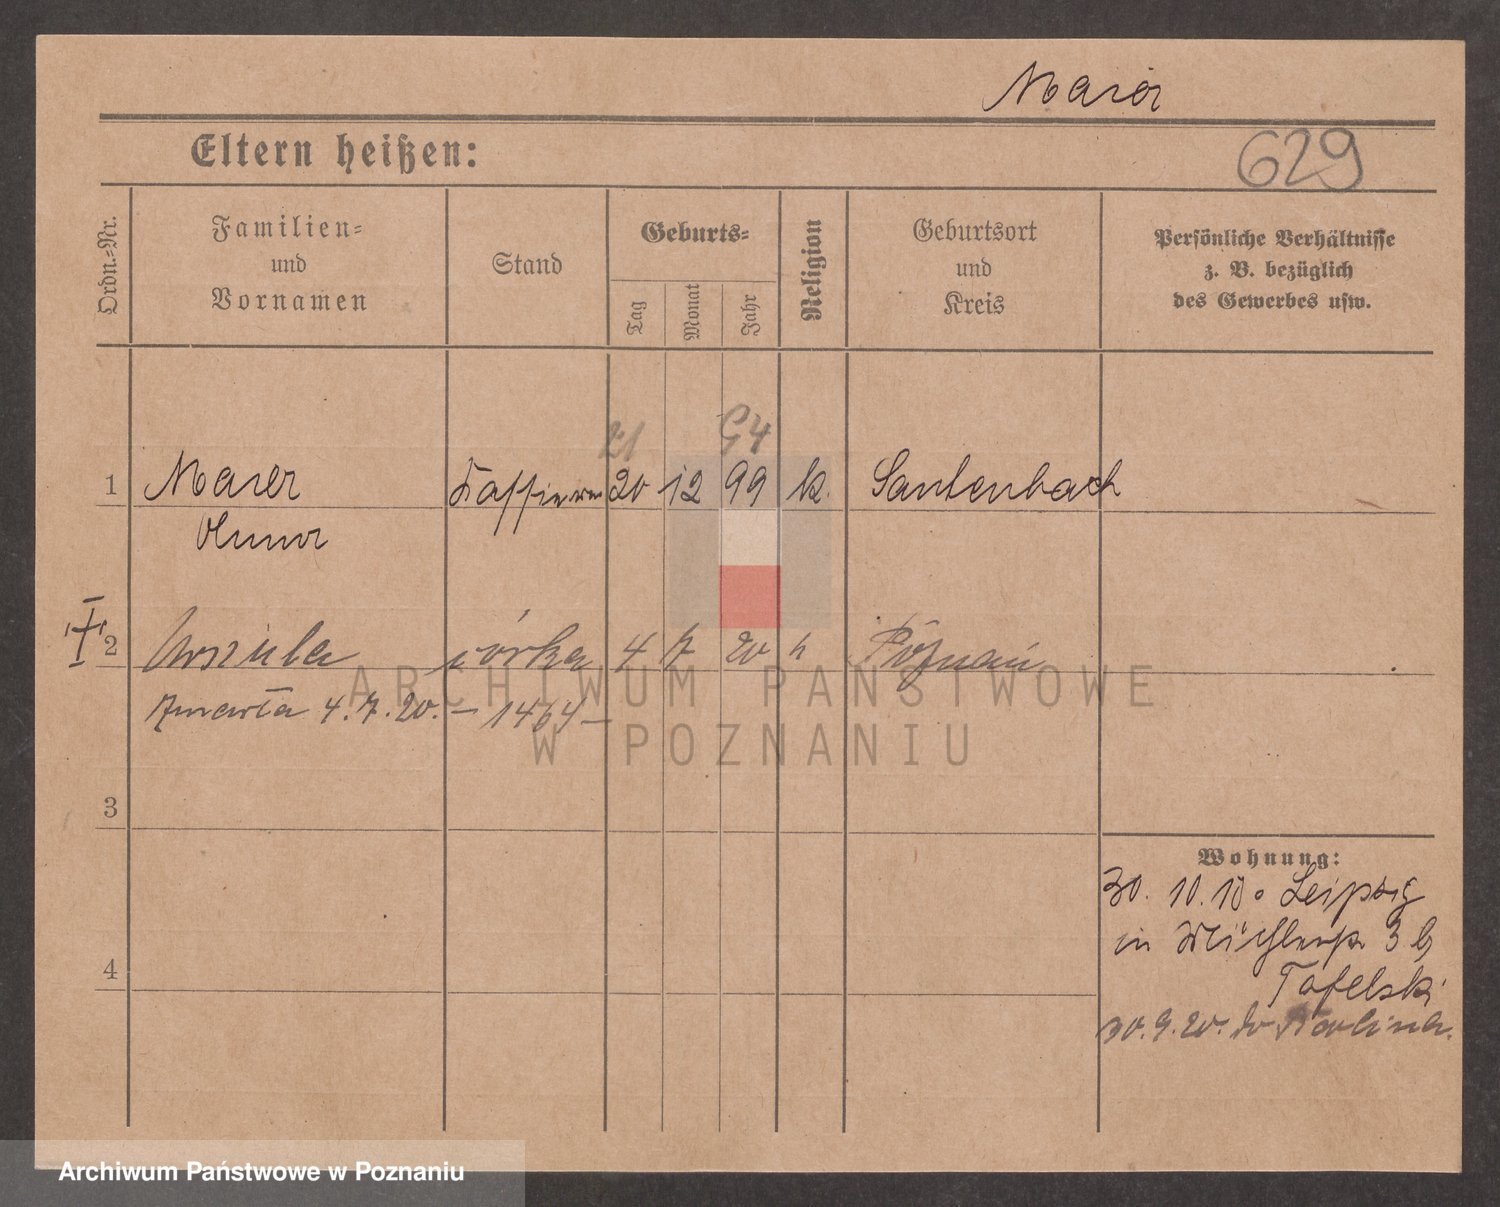 Maier
Eltern heißen:
629
Ordn.-Nr.
Familien-
und
Vornamen
Stand
Geburts-
Tag
Monat
Jahr
Religion
Geburtsort
und
Kreis
Persönliche Verhältnisse
z. B. bezüglich
des Gewerbes usw.
21 94
1 Maier 20 12 99 k. Santenbach
2 Urszula córka 4 7 20 k Poznań
Zmarła 4.7.20. – 1464 –
3
4
Wohnung:
30. 10. 18 Leipzig
in 3 b
Tafelski
30.9.20. do
ARCHIWUM PAŃSTWOWE
W POZNANIU
Archiwum Państwowe w Poznaniu